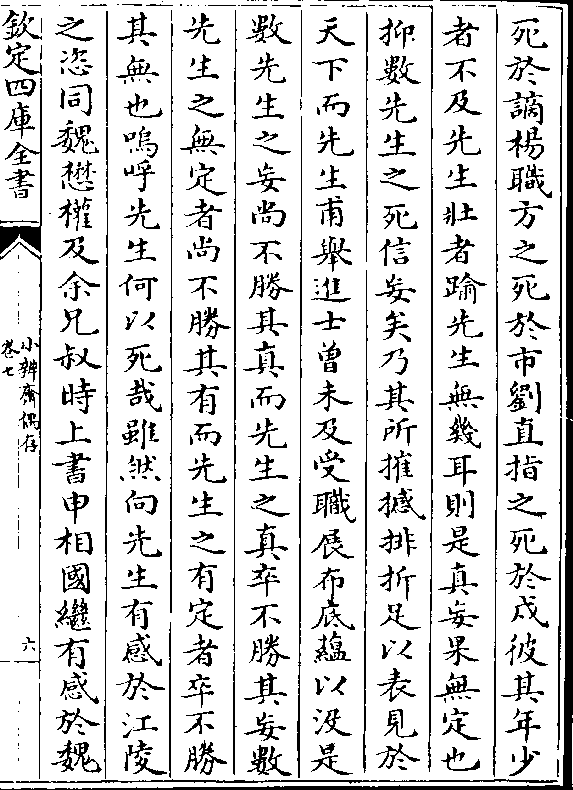 死於謫楊職方之死於市劉直指之死於戍彼其年少
者不及先生壯者踰先生無幾耳則是真妄果無定也
抑數先生之死信妄矣乃其所摧撼排折足以表見於
天下而先生甫舉進士曾未及受職展布底蘊以沒是
數先生之妄尚不勝其真而先生之真卒不勝其妄數
先生之無定者尚不勝其有而先生之有定者卒不勝
其無也嗚呼先生何以死哉雖然向先生有感於江陵
之恣同魏懋權及余兄叔時上書申相國繼有感於魏
欽定四庫全書
小辨齋偶存
卷七
六